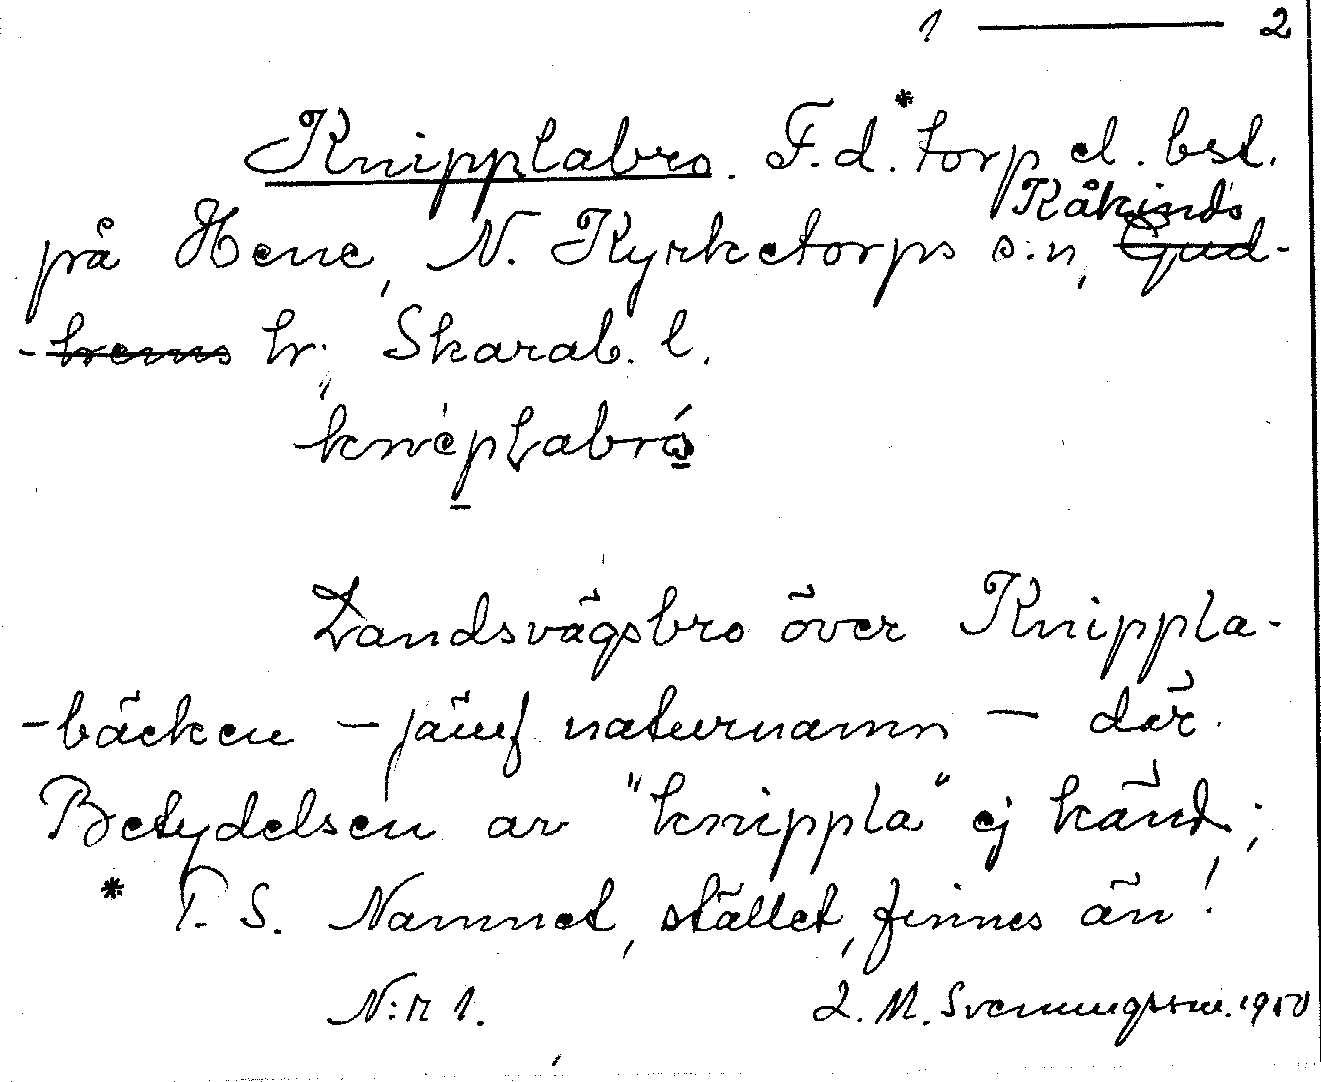 1 — 2
Knipplabro. F.d.* torp el. bst.
Kåkinds
på Hene, N. Kyrketorps s:n, Gud-
-hems hr; Skarab. l.
knèplabró
Landsvägsbro över Knippla-
-bäcken — jämf naturnamn — där.
Betydelsen av "knippla" ej känd;
* T. S. Namnet, stället, finnes än!
N:r 1. L. M. Svenungsson. 1950